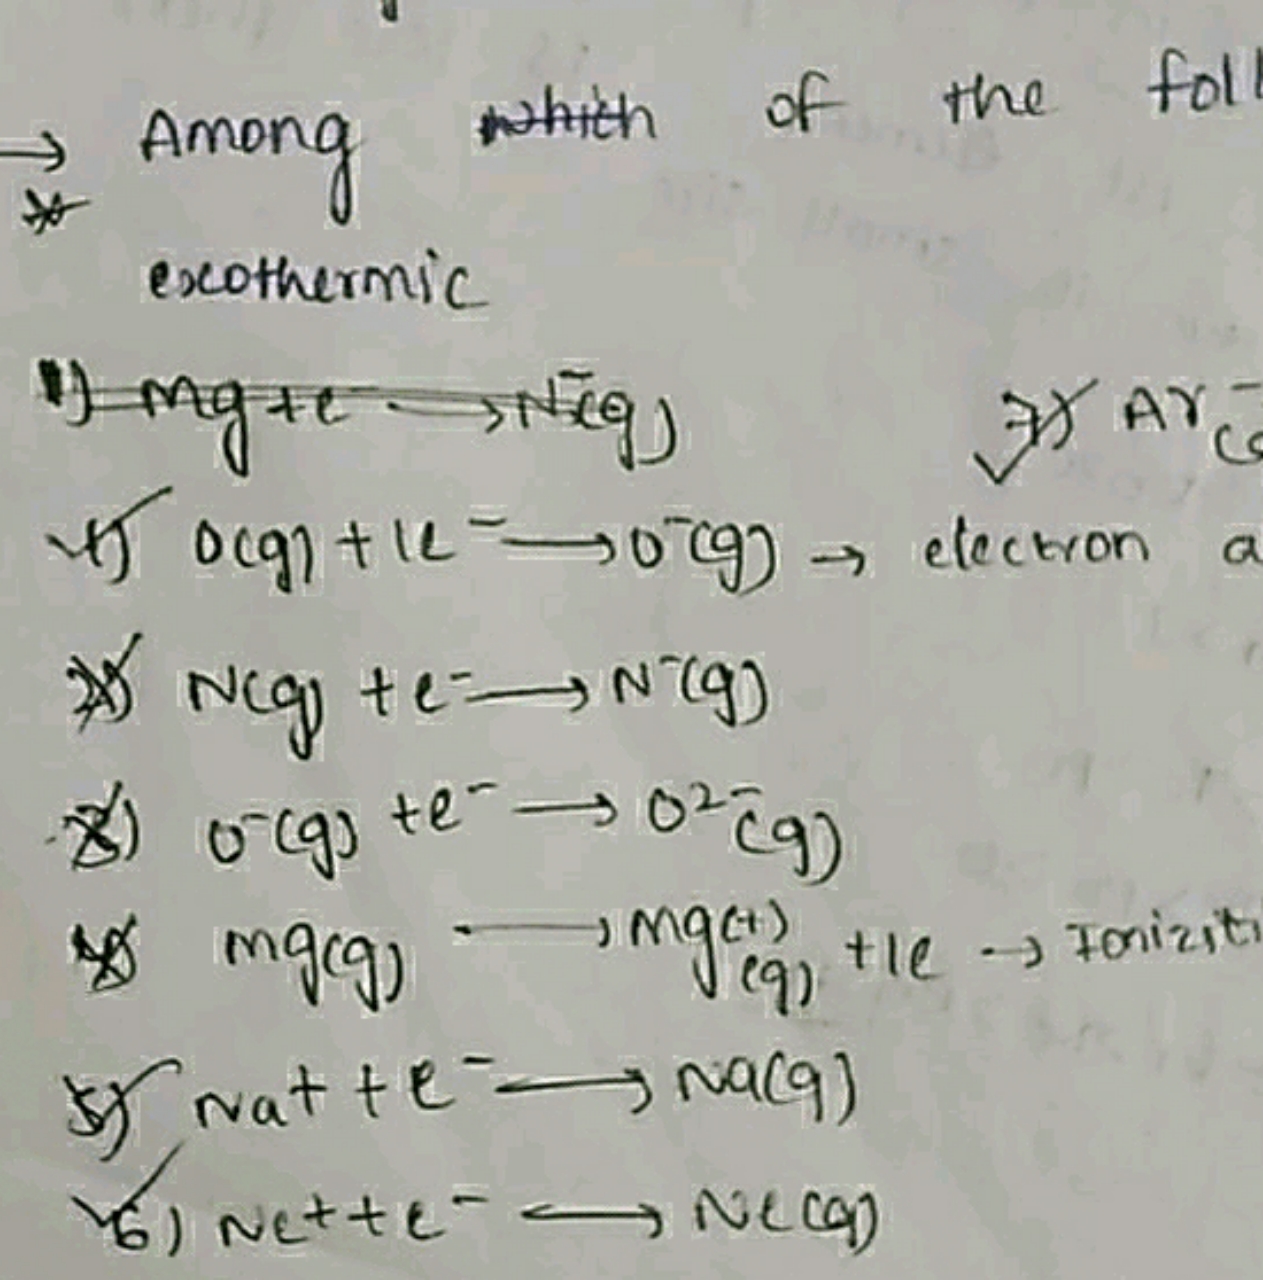 → Among which of the foll
exothermic
1) Mg + e → N⁻(g)
7) Ar⁻
1) O(g) + 1e⁻ → O⁻(g) → electron a
2) N(g) + e⁻ → N⁻(g)
3) O⁻(g) + e⁻ → O²⁻(g)
4) mg(g) → mg(+)(g) + 1e → Ionizati
5) Na+ + e⁻ → Na(g)
6) Ne+ + e⁻ ⟷ Ne(g)